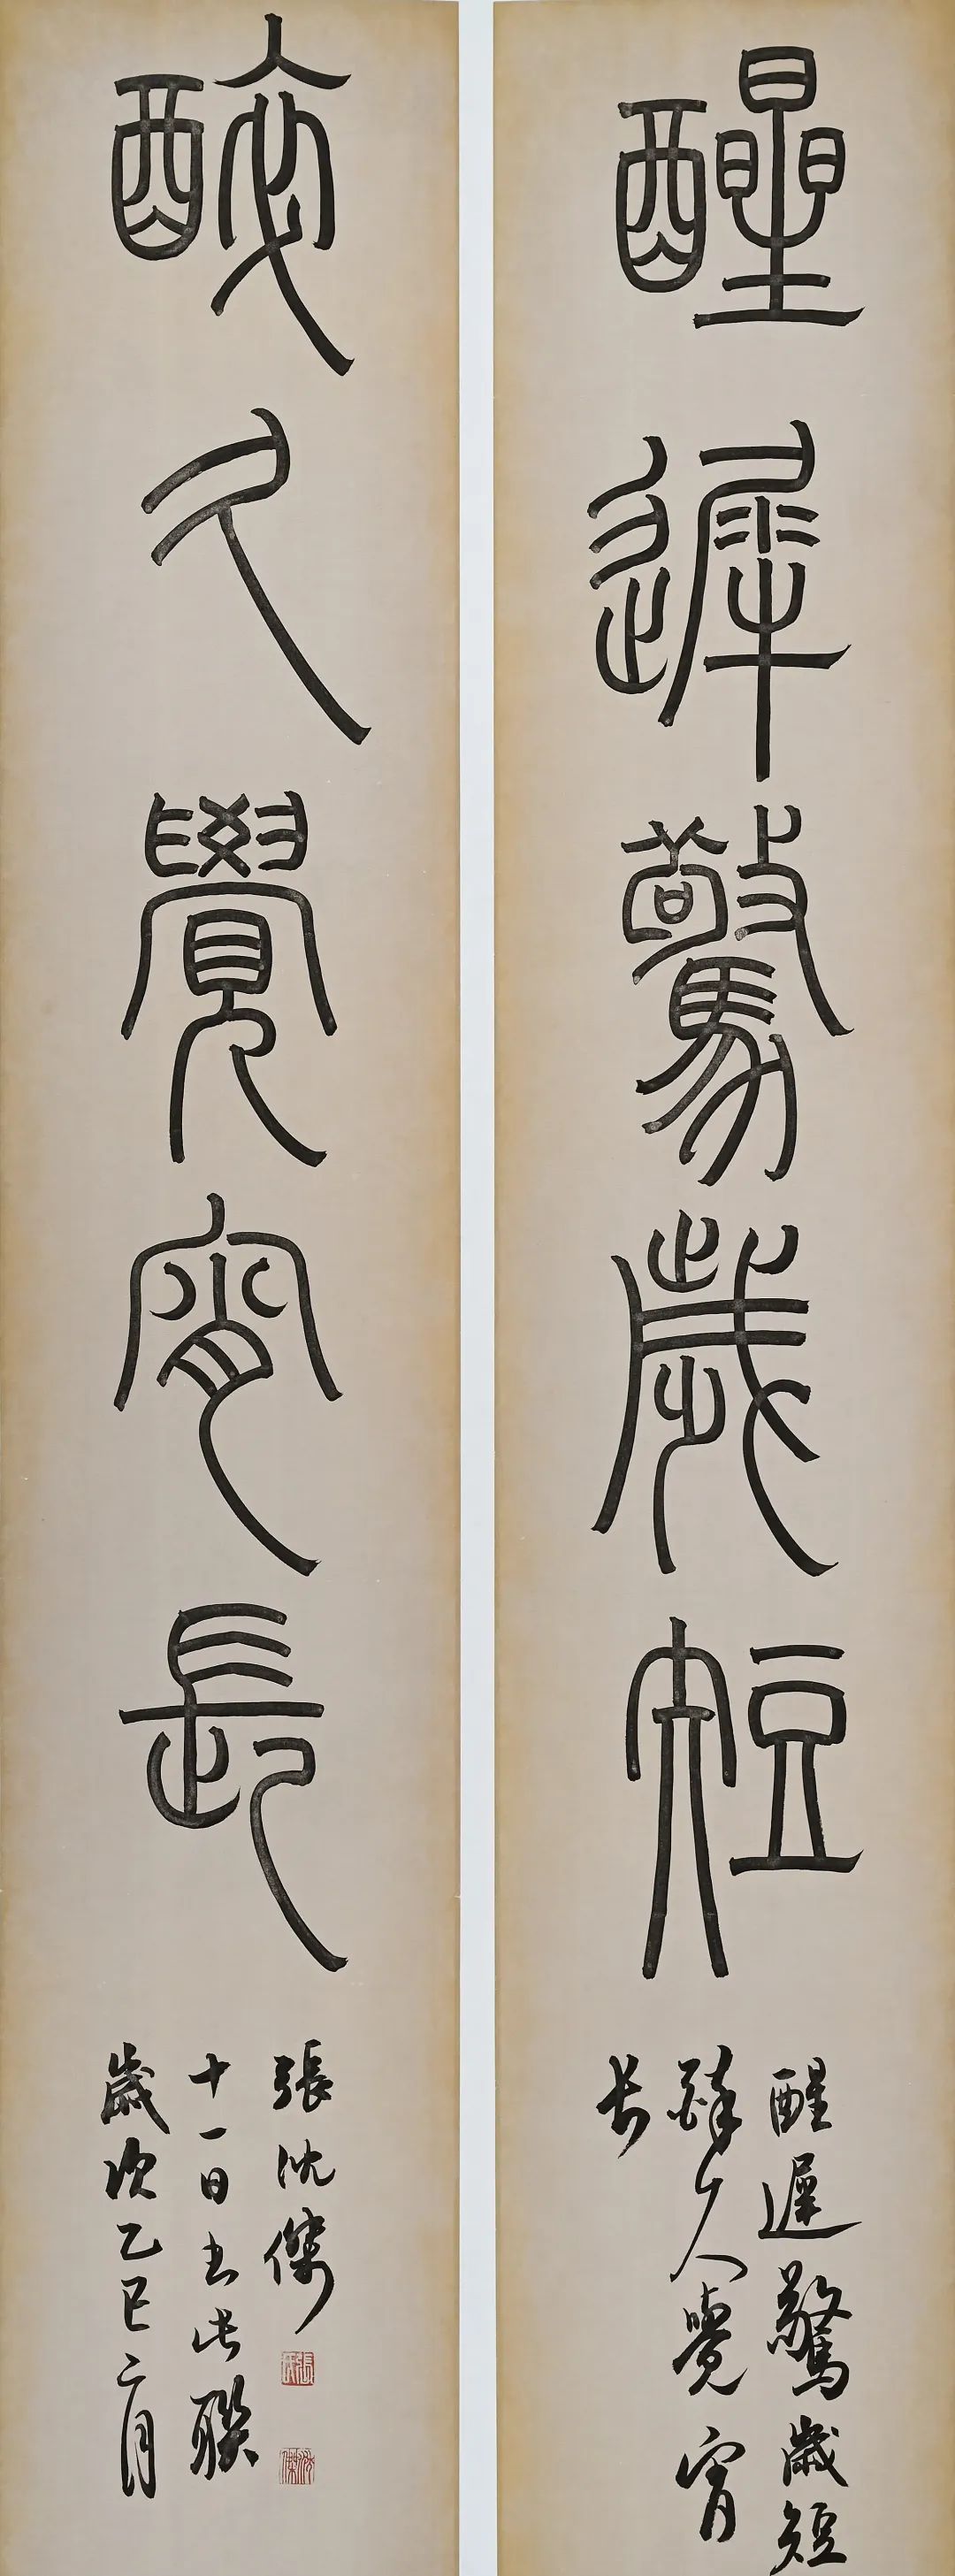 醒遲驚歲短
醒遲驚歲短
醉久覺宵
長
醉久覺宵長
歲次乙巳二月
十一日书此聯
張沈傑
張氏
沈傑